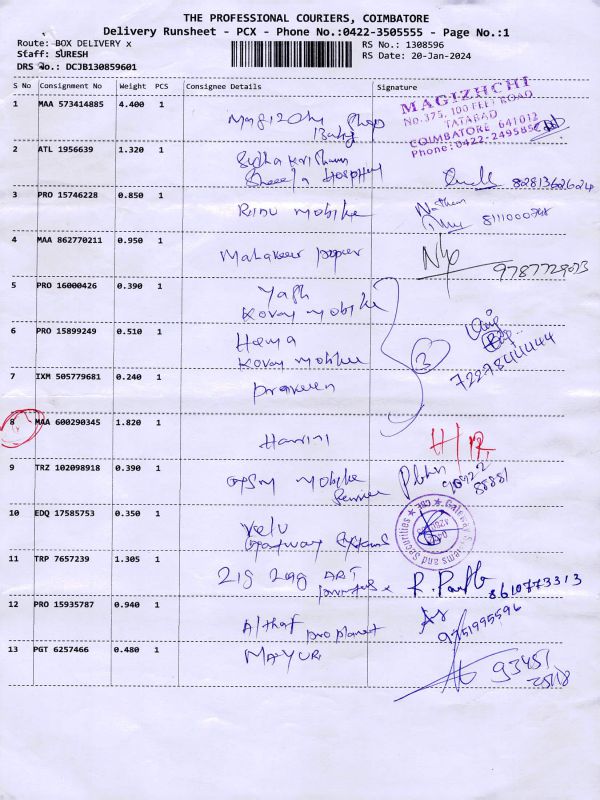 THE PROFESSIONAL COURIERS, COIMBATORE
Delivery Runsheet - PCX - Phone No.:0422-3505555 - Page No.:1
Route: BOX DELIVERY x
Staff: SURESH
DRS No.: DCJB130859601
RS No.: 1308596
RS Date: 20-Jan-2024
S No Consignment No Weight PCS Consignee Details Signature
1 MAA 573414885 4.400 1
Baby Shop
MAGIZHCHI
No.375, 100 FEET ROAD
TATABAD
COIMBATORE 641012
Phone:0422-249585
2 ATL 1956639 1.320 1
Sheela Hospital
8281362624
3 PRO 15746228 0.850 1
RINU mobike
Nathan
4 MAA 862770211 0.950 1
Mahaveer paper
9787729073
5 PRO 16000426 0.390 1
Yash
Kovai mobike
6 PRO 15899249 0.510 1
Hema
Kovai mobike
3
7227844444
7 IXM 505779681 0.240 1
praveen
8 MAA 600290345 1.820 1
Harini
9 TRZ 102098918 0.390 1
mobike
Service
90922
88881
10 EDQ 17585753 0.350 1
Velu
Gateway Systems
Gateway Systems and Securities
CBE
11 TRP 7657239 1.305 1
Zig Zag ART
printers x
8610773313
12 PRO 15935787 0.940 1
Althaf pro planet
9751995596
13 PGT 6257466 0.480 1
MAYURI
93451